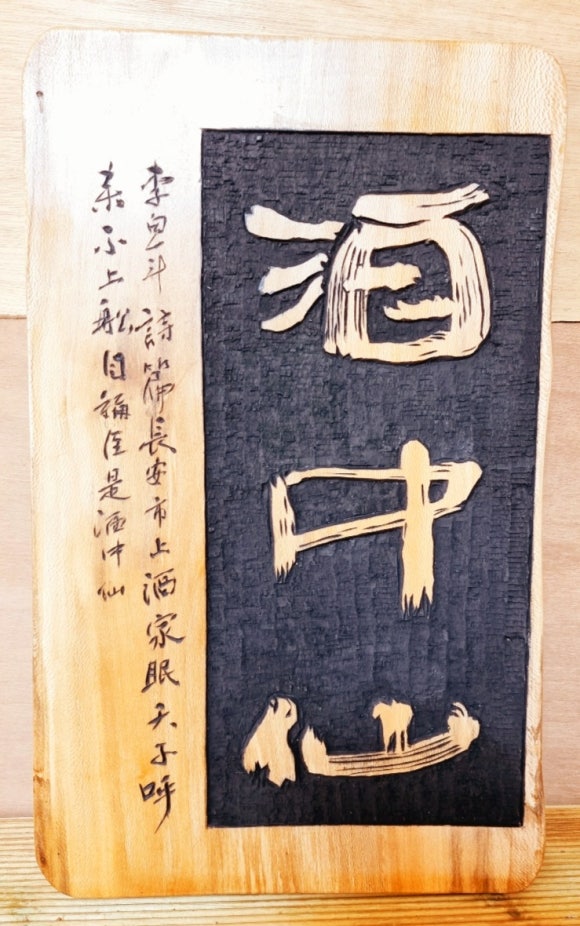 酒中仙
李白一斗詩篇長安市上酒家眠天子呼
來不上船自稱臣是酒中仙